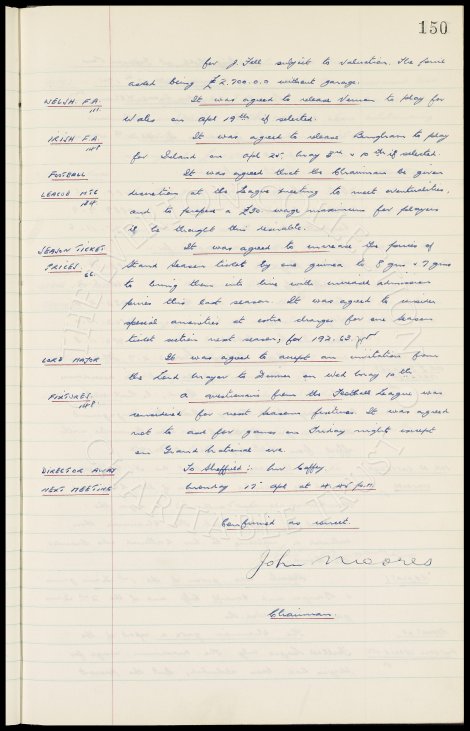 150
for J. Fell subject to valuation. The price
asked being £2.700.0.0 without garage.
WELSH. F.A.
It was agreed to release Vernon to play for
Wales on Apl 19th if selected.
IRISH F.A.
148
It was agreed to release Bingham to play
for Ireland on Apl 25, May 3rd & 10th if selected.
FOOTBALL
LEAGUE MTG
124
It was agreed that the Chairman be given
discretion at the League meeting to meet eventualities,
and to propose a £30 wage maximum for players
if he thought this desirable.
SEASON TICKET
PRICES.
66
It was agreed to increase the prices of
Stand Season tickets by one guinea to 8 gns & 7 gns
to bring them into line with increased admission
prices this last season. It was agreed to consider
special amenities at extra charges for one season
ticket section next season, for 1962.63
LORD MAYOR
It was agreed to accept an invitation from
the Lord Mayor to Dinner on Wed May 10th
FIXTURES.
148
A questionaire from the Football League was
considered for next seasons fixtures. It was agreed
not to ask for games on Friday nights except
on Grand National eve.
DIRECTOR AWAY
To Sheffield:- Mr Coffey
NEXT MEETING
Monday 17 Apl at 4.45 P.M.
Confirmed as correct.
John Moores
Chairman.
THE EVERTON COLLECTION
CHARITABLE TRUST